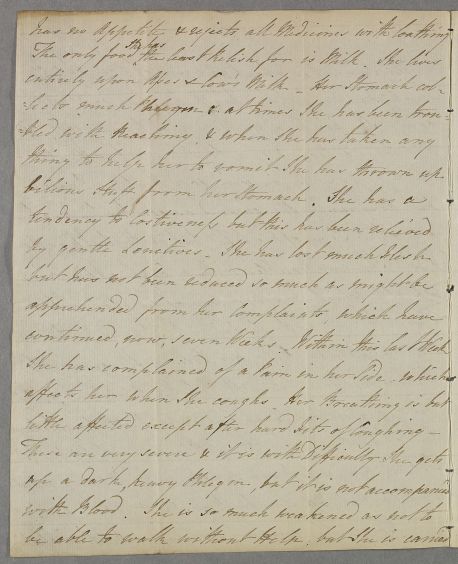 has no Appetite & rejects all Medicines with loathing
The only food She has the least Relish for is Milk. She lives
entirely upon Asses & Cow's Milk - Her Stomach col-
-lects much Phlegm & at times She has been trou-
-bled with Reaching, & when She has taken any
thing to help her to vomit She has thrown up
bilious Stuff from her Stomach. She has a
tendency to Costiveness but this has been relieved
by gentle Lenitives. She has lost much Flesh
but has not been reduced so much as might be
apprehended from her Complaints which have
continued, now, seven Weeks. Within this last Week
She has complained of a Pain in her Side, which
affects her when She coughs. Her Breathing is but
little affected except after hard Fits of Coughing -
These are very severe & it is with Difficulty She gets
up a dark, heavy Phlegm but it is not accompanied
with Blood. She is so much weakened as not to
be able to walk without Help, but She is carried